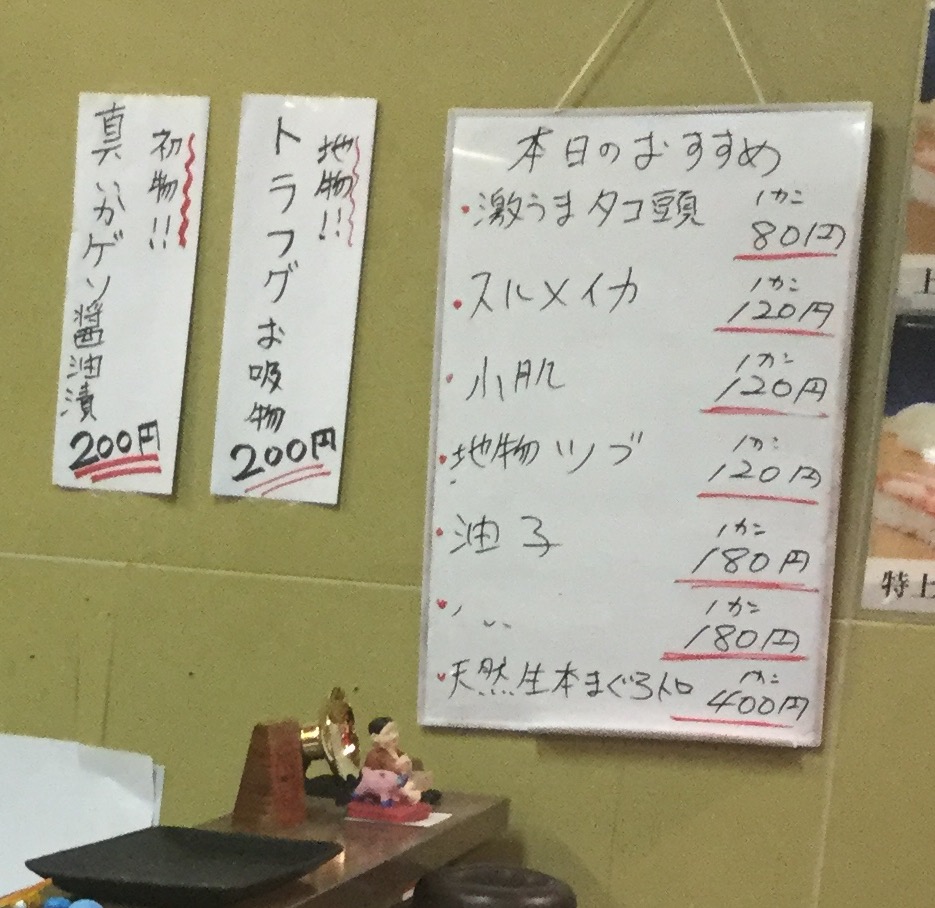 初物!!
真いかゲソ醤油漬
200円
地物!!
トラフグお吸物
200円
本日のおすすめ
・激うまタコ頭 1カン 80円
・スルメイカ 1カン 120円
・小肌 1カン 120円
・地物ツブ 1カン 120円
・油子 1カン 180円
・ 1カン 180円
・天然生本まぐろトロ 1カン 400円
上
特上